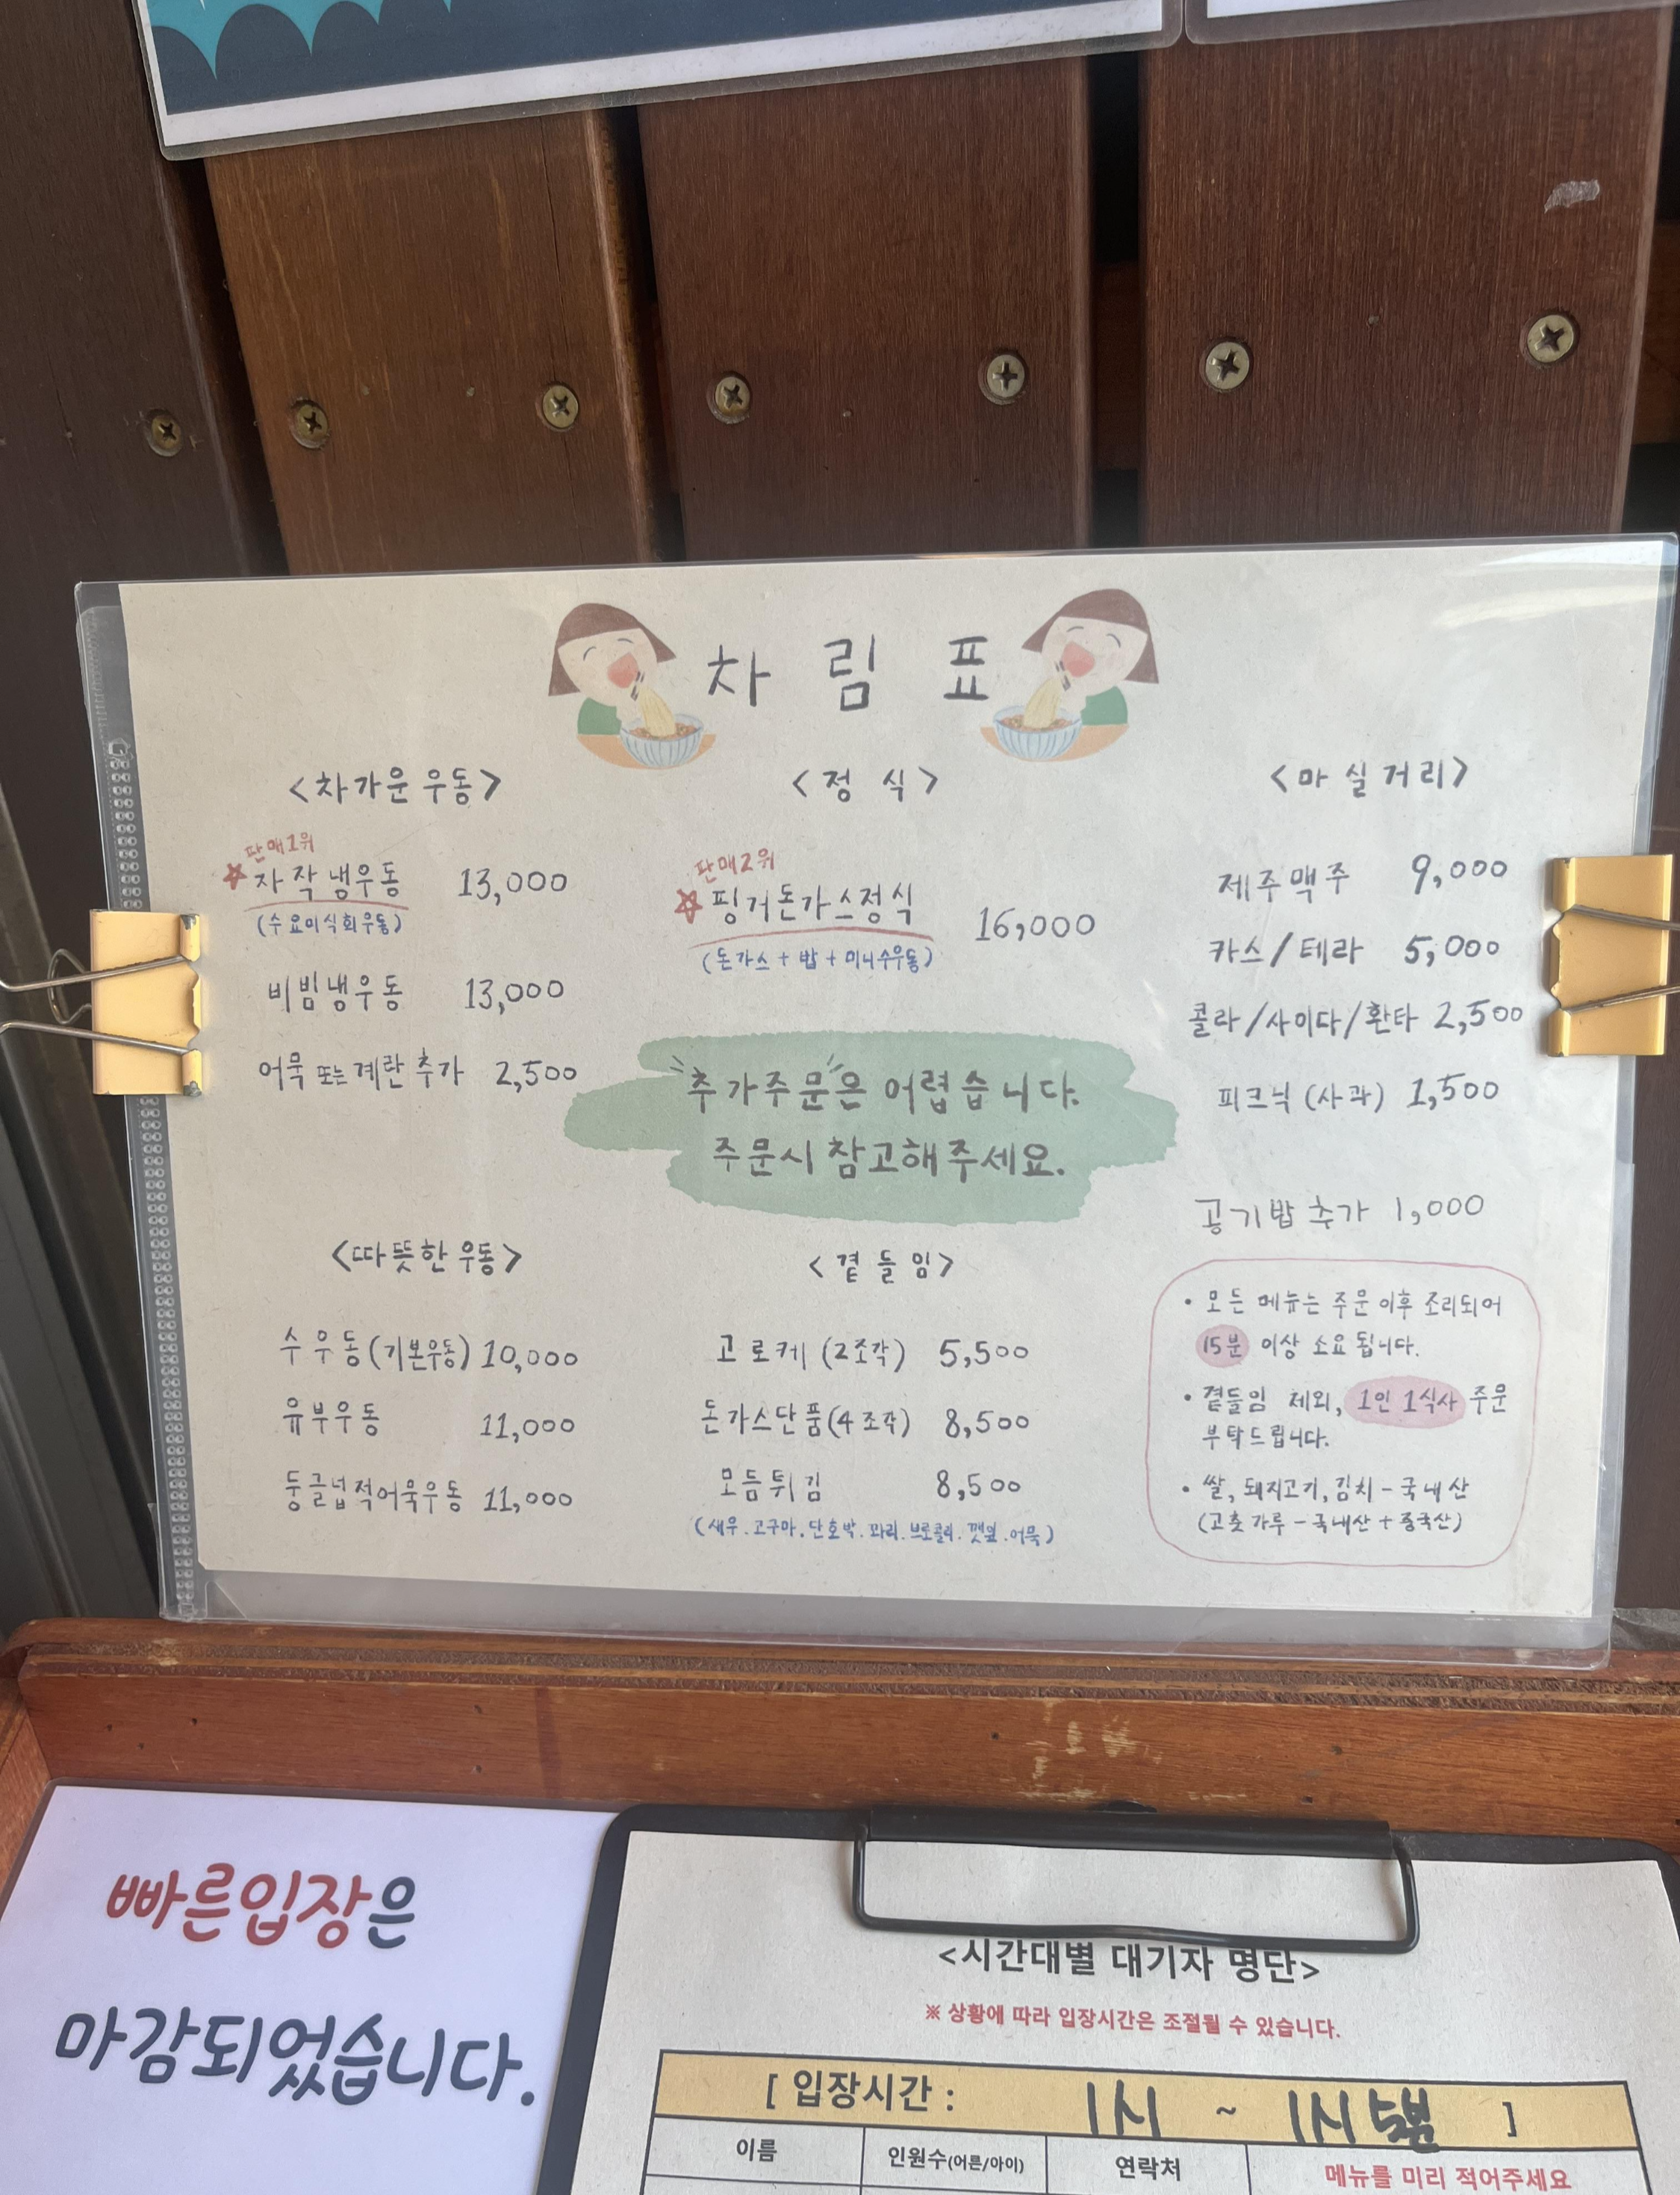 차림표
<차가운 우동>
판매1위
☆ 자작냉우동 13,000
(수요미식회우동)
비빔냉우동 13,000
어묵 또는 계란 추가 2,500
<정식>
판매2위
☆ 핑거돈가스정식 16,000
(돈가스 + 밥 + 미니수우동)
<마실거리>
제주맥주 9,000
카스/테라 5,000
콜라/사이다/환타 2,500
피크닉 (사과) 1,500
공기밥 추가 1,000
추가주문은 어렵습니다.
주문시 참고해주세요.
<따뜻한 우동>
수우동(기본우동) 10,000
유부우동 11,000
둥글넙적어묵우동 11,000
<곁들임>
고로케 (2조각) 5,500
돈가스단품(4조각) 8,500
모듬튀김 8,500
(새우.고구마.단호박.꽈리.브로콜리.깻잎.어묵)
• 모든 메뉴는 주문 이후 조리되어
15분 이상 소요 됩니다.
• 곁들임 제외, 1인 1식사 주문
부탁드립니다.
• 쌀, 돼지고기, 김치 - 국내산
(고춧가루 - 국내산 + 중국산)
빠른입장은
마감되었습니다.
<시간대별 대기자 명단>
※ 상황에 따라 입장시간은 조절될 수 있습니다.
[ 입장시간 : 1시 ~ 1시 5분 ]
이름 인원수(어른/아이) 연락처 메뉴를 미리 적어주세요